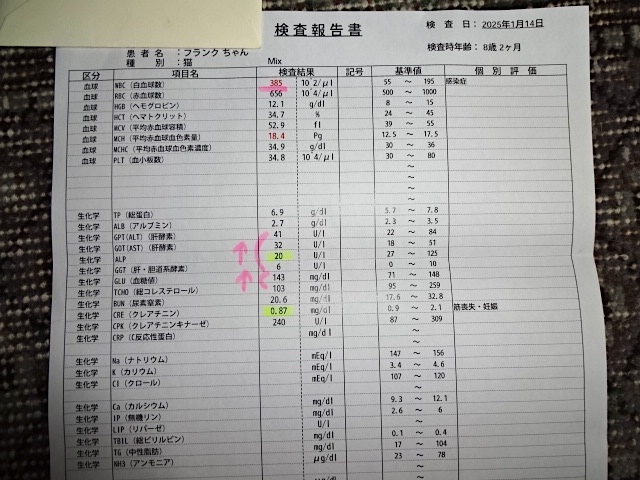 検査報告書
検 査 日: 2025年1月14日
患者名 : フランク ちゃん
検査時年齢: 8歳 2ヶ月
種 別 : 猫 Mix
区分 項目名 検査結果 記号 基準値 個別評価
血球 WBC (白血球数) 385 10^2/μl 55 ～ 195 感染症
血球 RBC (赤血球数) 656 10^4/μl 500 ～ 1000
血球 HGB (ヘモグロビン) 12.1 g/dl 8 ～ 15
血球 HCT (ヘマトクリット) 34.7 % 24 ～ 45
血球 MCV (平均赤血球容積) 52.9 fl 39 ～ 55
血球 MCH (平均赤血球血色素量) 18.4 Pg 12.5 ～ 17.5
血球 MCHC (平均赤血球血色素濃度) 34.9 g/dl 30 ～ 36
血球 PLT (血小板数) 34.8 10^4/μl 30 ～ 80
～
～
～
～
生化学 TP (総蛋白) 6.9 g/dl 5.7 ～ 7.8
生化学 ALB (アルブミン) 2.7 g/dl 2.3 ～ 3.5
生化学 GPT(ALT) (肝酵素) 41 U/l 22 ～ 84
生化学 GOT(AST) (肝酵素) 32 U/l 18 ～ 51
生化学 ALP 20 U/l 27 ～ 125
生化学 GGT (肝・胆道系酵素) 6 U/l 0 ～ 10
生化学 GLU (血糖値) 143 mg/dl 71 ～ 148
生化学 TCHO (総コレステロール) 103 mg/dl 95 ～ 259
生化学 BUN (尿素窒素) 20.6 mg/dl 17.6 ～ 32.8
生化学 CRE (クレアチニン) 0.87 mg/dl 0.9 ～ 2.1 筋喪失・妊娠
生化学 CPK (クレアチニンキナーゼ) 240 U/l 87 ～ 309
生化学 CRP (C反応性蛋白) mg/dl ～
～
生化学 Na (ナトリウム) mEq/l 147 ～ 156
生化学 K (カリウム) mEq/l 3.4 ～ 4.6
生化学 Cl (クロール) mEq/l 107 ～ 120
～
生化学 Ca (カルシウム) mg/dl 9.3 ～ 12.1
生化学 IP (無機リン) mg/dl 2.6 ～ 6
生化学 LIP (リパーゼ) U/l ～
生化学 TBIL (総ビリルビン) mg/dl 0.1 ～ 0.4
生化学 TG (中性脂肪) mg/dl 17 ～ 104
生化学 NH3 (アンモニア) μg/dl 23 ～ 78
～